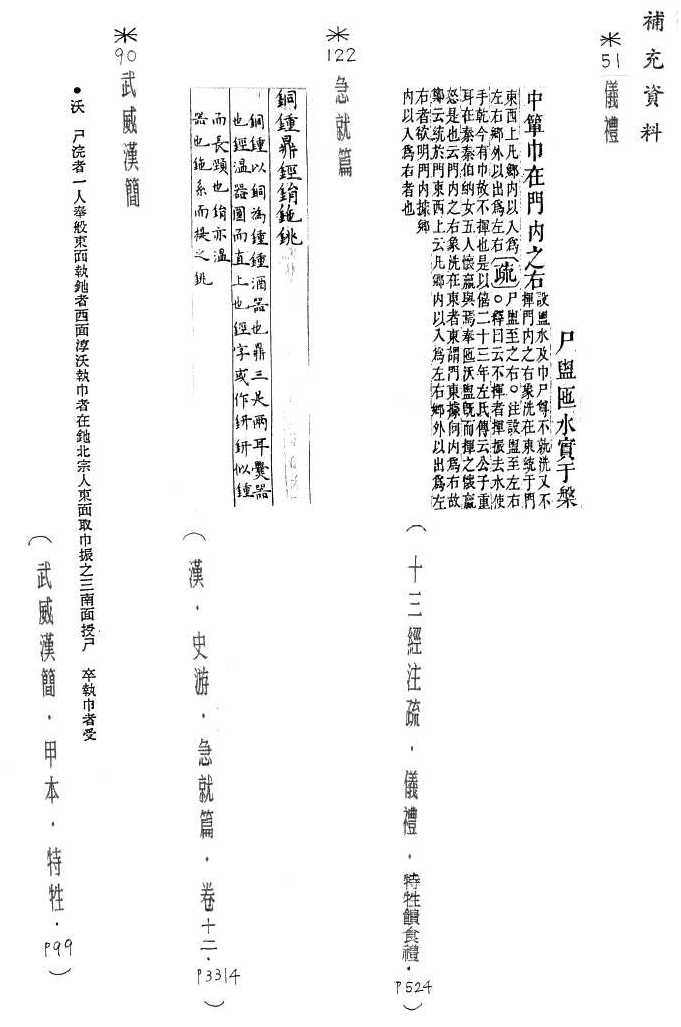 補充資料
*51 儀禮
尸盥匜水實于槃
中簞巾在門內之右
設盥水及巾尸尊不就洗又不
揮門內之右象洗在東統于門
東西上凡鄉內以入為
左右鄉外以出為左右
疏
尸盥至之右○注設盥至左右
○釋曰云不揮者揮振去水使
手乾今有巾故不揮也是以僖二十三年左氏傳云公子重
耳在秦秦伯納女五人懷嬴與焉奉匜沃盥既而揮之懷嬴
怒是也云門內之右象洗在東者東謂門東據向內為右故
鄭云統於門東西上云凡鄉內以入為左右鄉外以出為左
右者欲明門內據鄉
內以入為右者也
(十三經注疏.儀禮.特牲饋食禮.P524)
*122 急就篇
銅鍾鼎鋞鋗鉇銚
銅鍾以銅為鍾鍾酒器也鼎三足兩耳爨器
也鋞溫器圜而直上也鋞字或作鈃鈃似鍾
而長頸也鋗亦溫
器也鉇系而提之銚
(漢.史游.急就篇.卷十二.P3314)
*90 武威漢簡
•沃 尸浣者一人奉般東面執鉇者西面淳沃執巾者在鉇北宗人東面取巾振之三南面授尸 卒執巾者受
(武威漢簡.甲本.特牲.P99)